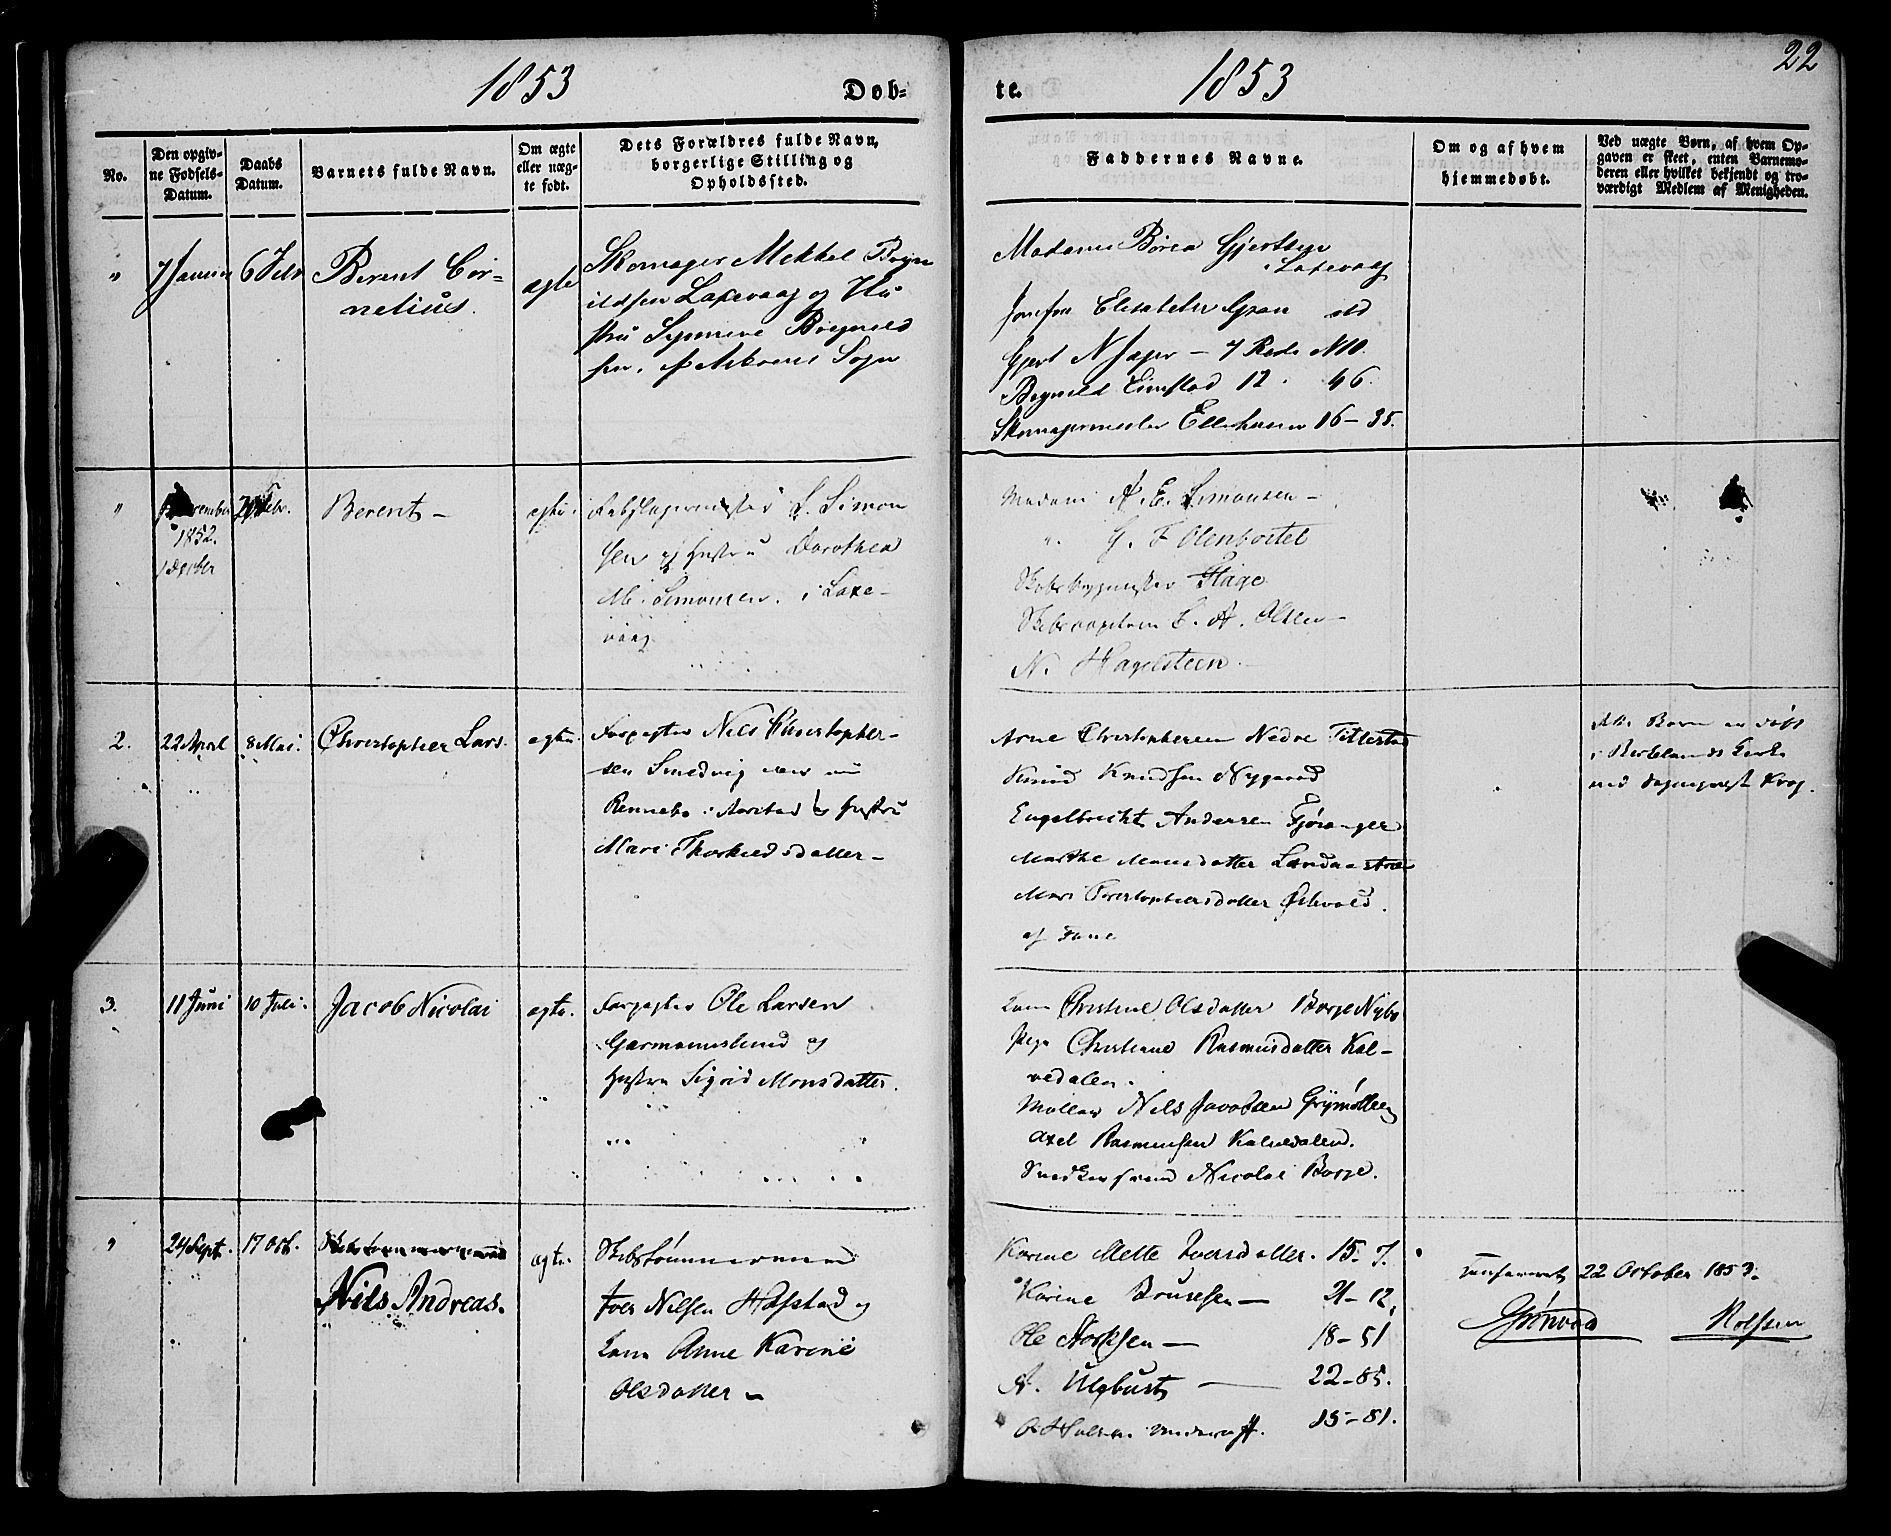 22
1853
Dob-
te.
1853
No.
Den opgiv-
ne Fødsels-
Datum.
Daabs
Datum.
Barnets fulde Navn.
Om ægte
eller uæg-
te født.
Dets Forældres fulde Navn,
borgerlige Stilling og
Opholdssted.
Faddernes Navne.
Om og af hvem
hjemmedøbt.
Ved uægte Børn, af hvem Op-
gaven er skeet, enten Barnemo-
deren eller hvilket bekjendt og tro-
værdigt Medlem af Menigheden.
"
7 Januar
6 Febr
Berent Cor-
nelius.
ægte
Skomager Mekkel Bryn
ildsen Laxevaag og Hu
stru
sen, Askøens Sogn
Madame Børea Gjertsen
i Laxevaag
Jomfru Elisabeth Gran
Gjert N Jager - 7 Rode N 10.
12. 46.
Skomagermester Ellerhusen 16 - 35.
"
1852.
Febr.
Berent -
egte.
Rebslagermester S. Simon
sen og Hustru Dorothea
M. Simonsen. i Laxe-
vaag
Madam A. E. Simonsen -
" G. F. Olenbostel
Skibsbygmester Hage
Skibscapitain C. A. Olsen -
N. Hagelsteen. -
2.
22 April
8 Mai.
Christopher Lars.
egte.
Forpagter Nils Christopher-
sen Smedvig
Rennebo i Aarstad & Hustru
Mari Thorkildsdatter -
Arne Christophersen Nedre Titlestad
Knud Knudsen Nygaard
Engelbrecht Andersen Fjøsanger
Marthe Monsdatter Landaas
Mari Christophersdatter
af Fane
Barn er døbt
i Birkelands Kirke
3.
11 Juni
10 Juli.
Jacob Nicolai
egte.
Forpagter Ole Larsen
Garmannslund og
Hustru Sigrid Monsdatter.
Kone Christine Olsdatter Borge Nybo
Pige Christiane Rasmusdatter Kal-
vedalen.
Møller Nils Jacobsen Grymøllen
Axel Rasmussen Kalvedalen.
Snedkersvend Nicolai Borge.
"
24 Sept.
17 Oct.
Nils Andreas.
egte.
Skibstømmermand
Iver Nilsen Hofstad og
Kone Anne Karine
Olsdatter -
Karine Mette Iversdatter. 15 - 7.
Karine - 21 - 12.
Ole - 18 - 51
A. - 22 - 85.
15 - 81.
Confereret 22 October 1853.
Grønvod Rolfsen